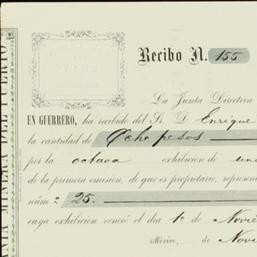 Recibo N. 155
La Junta Directiva
EN GUERRERO, ha recibido del Sr. D. Enrique
la cantidad de Ocho pesos
por la octava exhibicion de una
de la primera emision, de que es propietario, represen
núm 2 25.
cuya exhibicion venció el dia 1º de Novie
México, de Nov